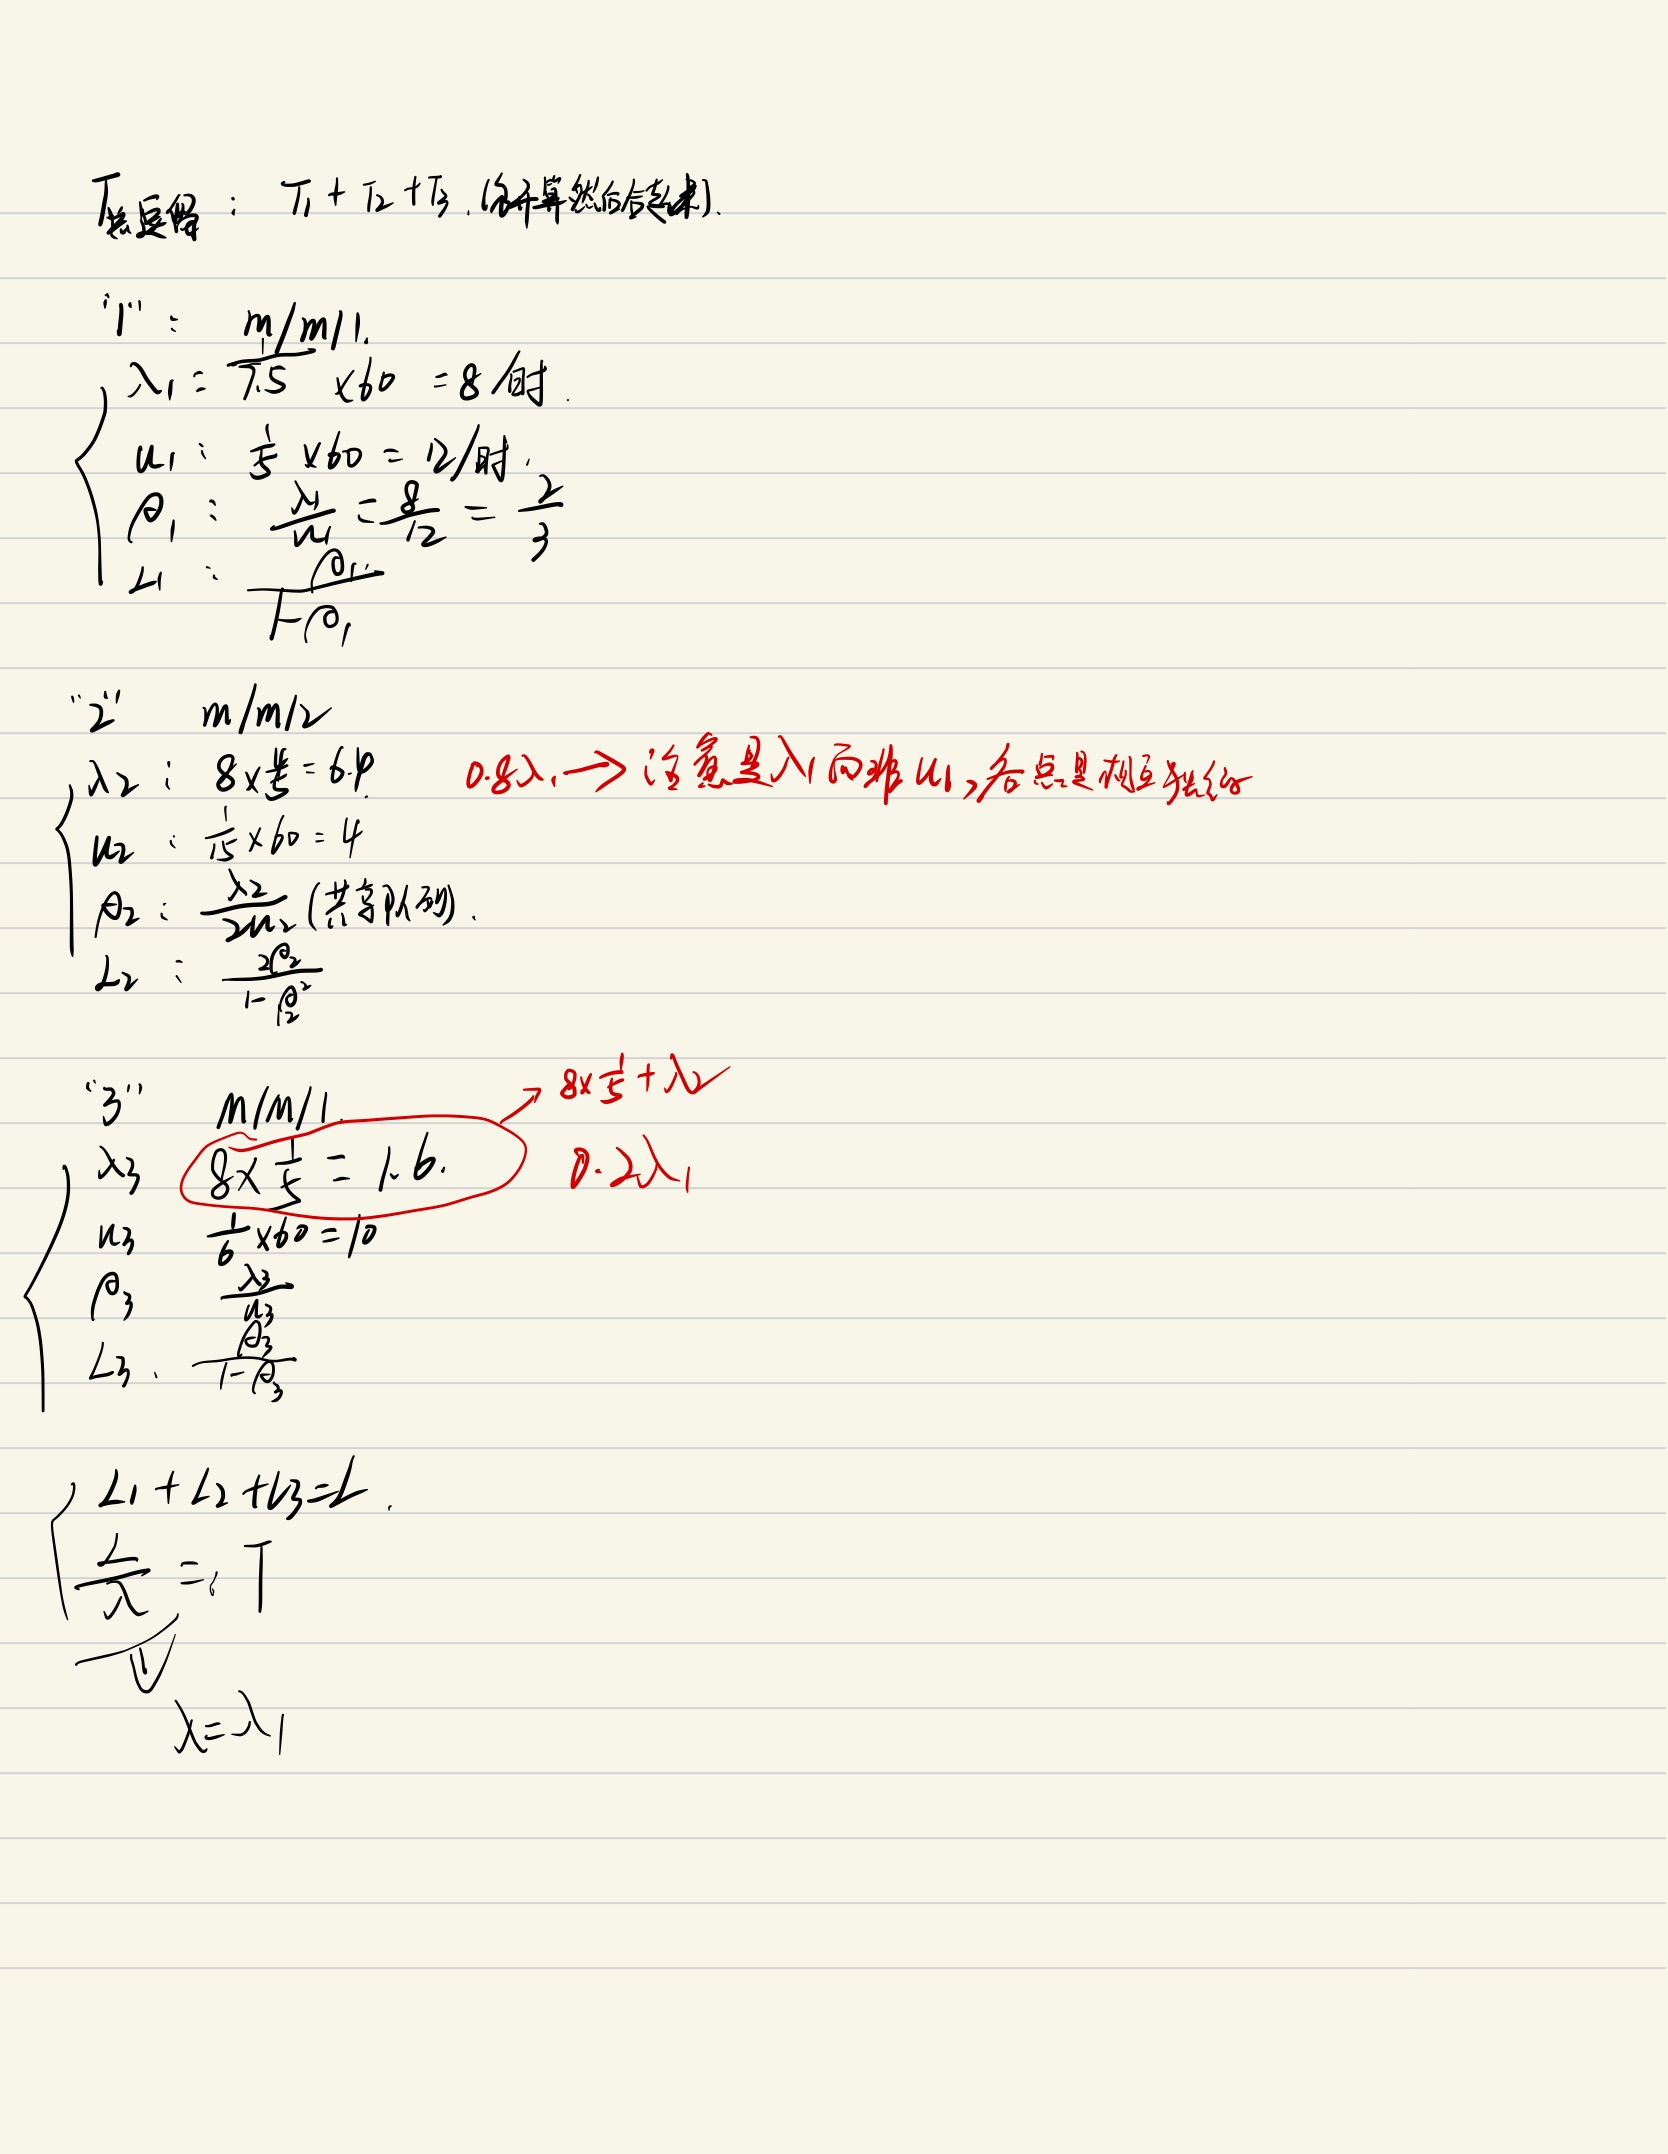 T总逗留 : T1 + T2 + T3. (分开算然后合起来).
"1" : m/m/1.
λ1 = 1/7.5 ×60 = 8/时.
u1 : 1/5 ×60 = 12/时.
ρ1 : λ1/u1 = 8/12 = 2/3
L1 : ρ1/1-ρ1
"2" m/m/2
λ2 : 8×4/5 = 6.4. 0.8λ1 → 注意是λ1而非u1, 各点是相互独立的
u2 : 1/15 ×60 = 4
ρ2 : λ2/2u2 (共享队列).
L2 : 2ρ2/1-ρ2²
"3" M/M/1. → 8×1/5 + λ2
λ3 8×1/5 = 1.6. 0.2λ1
u3 1/6 ×60 = 10
ρ3 λ3/u3
L3. ρ3/1-ρ3
L1 + L2 + L3 = L.
L/λ = T
λ = λ1